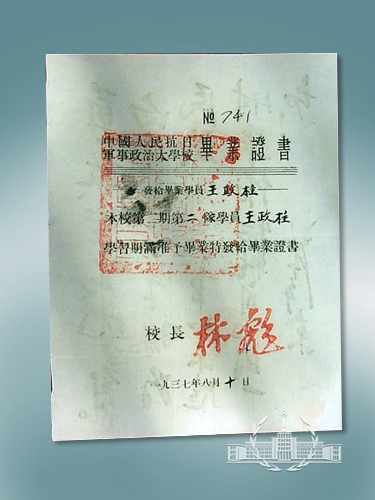 № 741
中國人民抗日
軍事政治大學校 畢業證書
發給畢業學員王政柱
本校第二期第二隊學員王政柱
學習期滿准予畢業特發給畢業證書
校長 林彪
一九三七年八月十日